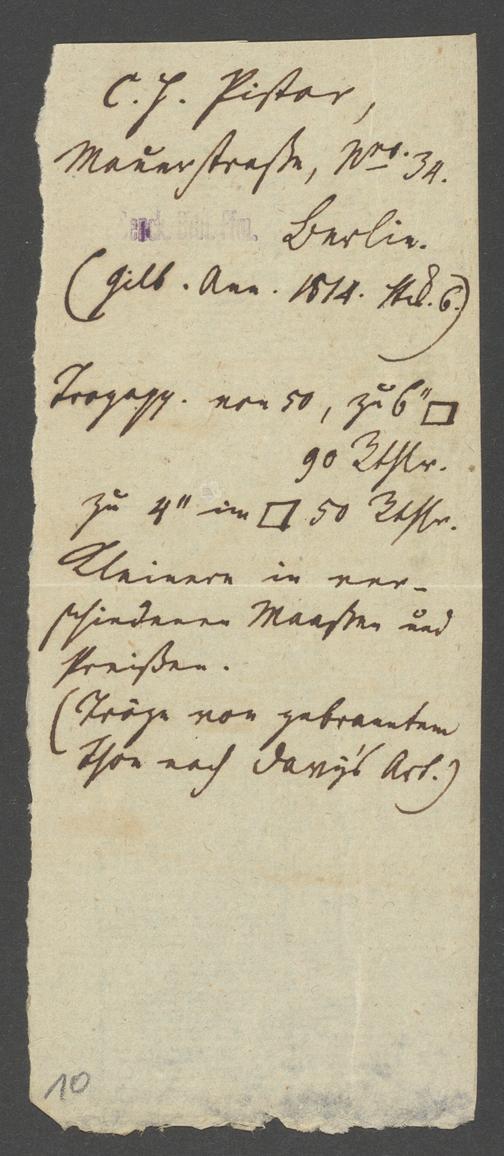 C. H. Pistor,
Mauerstraße, Nro. 34.
Senck. Bibl. Ffm.
Berlin.
(Gilb. Ann. 1814. St. 6.)
Trogapp. von 50, zu 6" □
90 Rthlr.
zu 4" im □ 50 Rthlr.
Kleinere in ver-
schiedenen Maaßen und
Preißen.
(Tröge von gebranntem
Thon nach Davy's Art.)
10